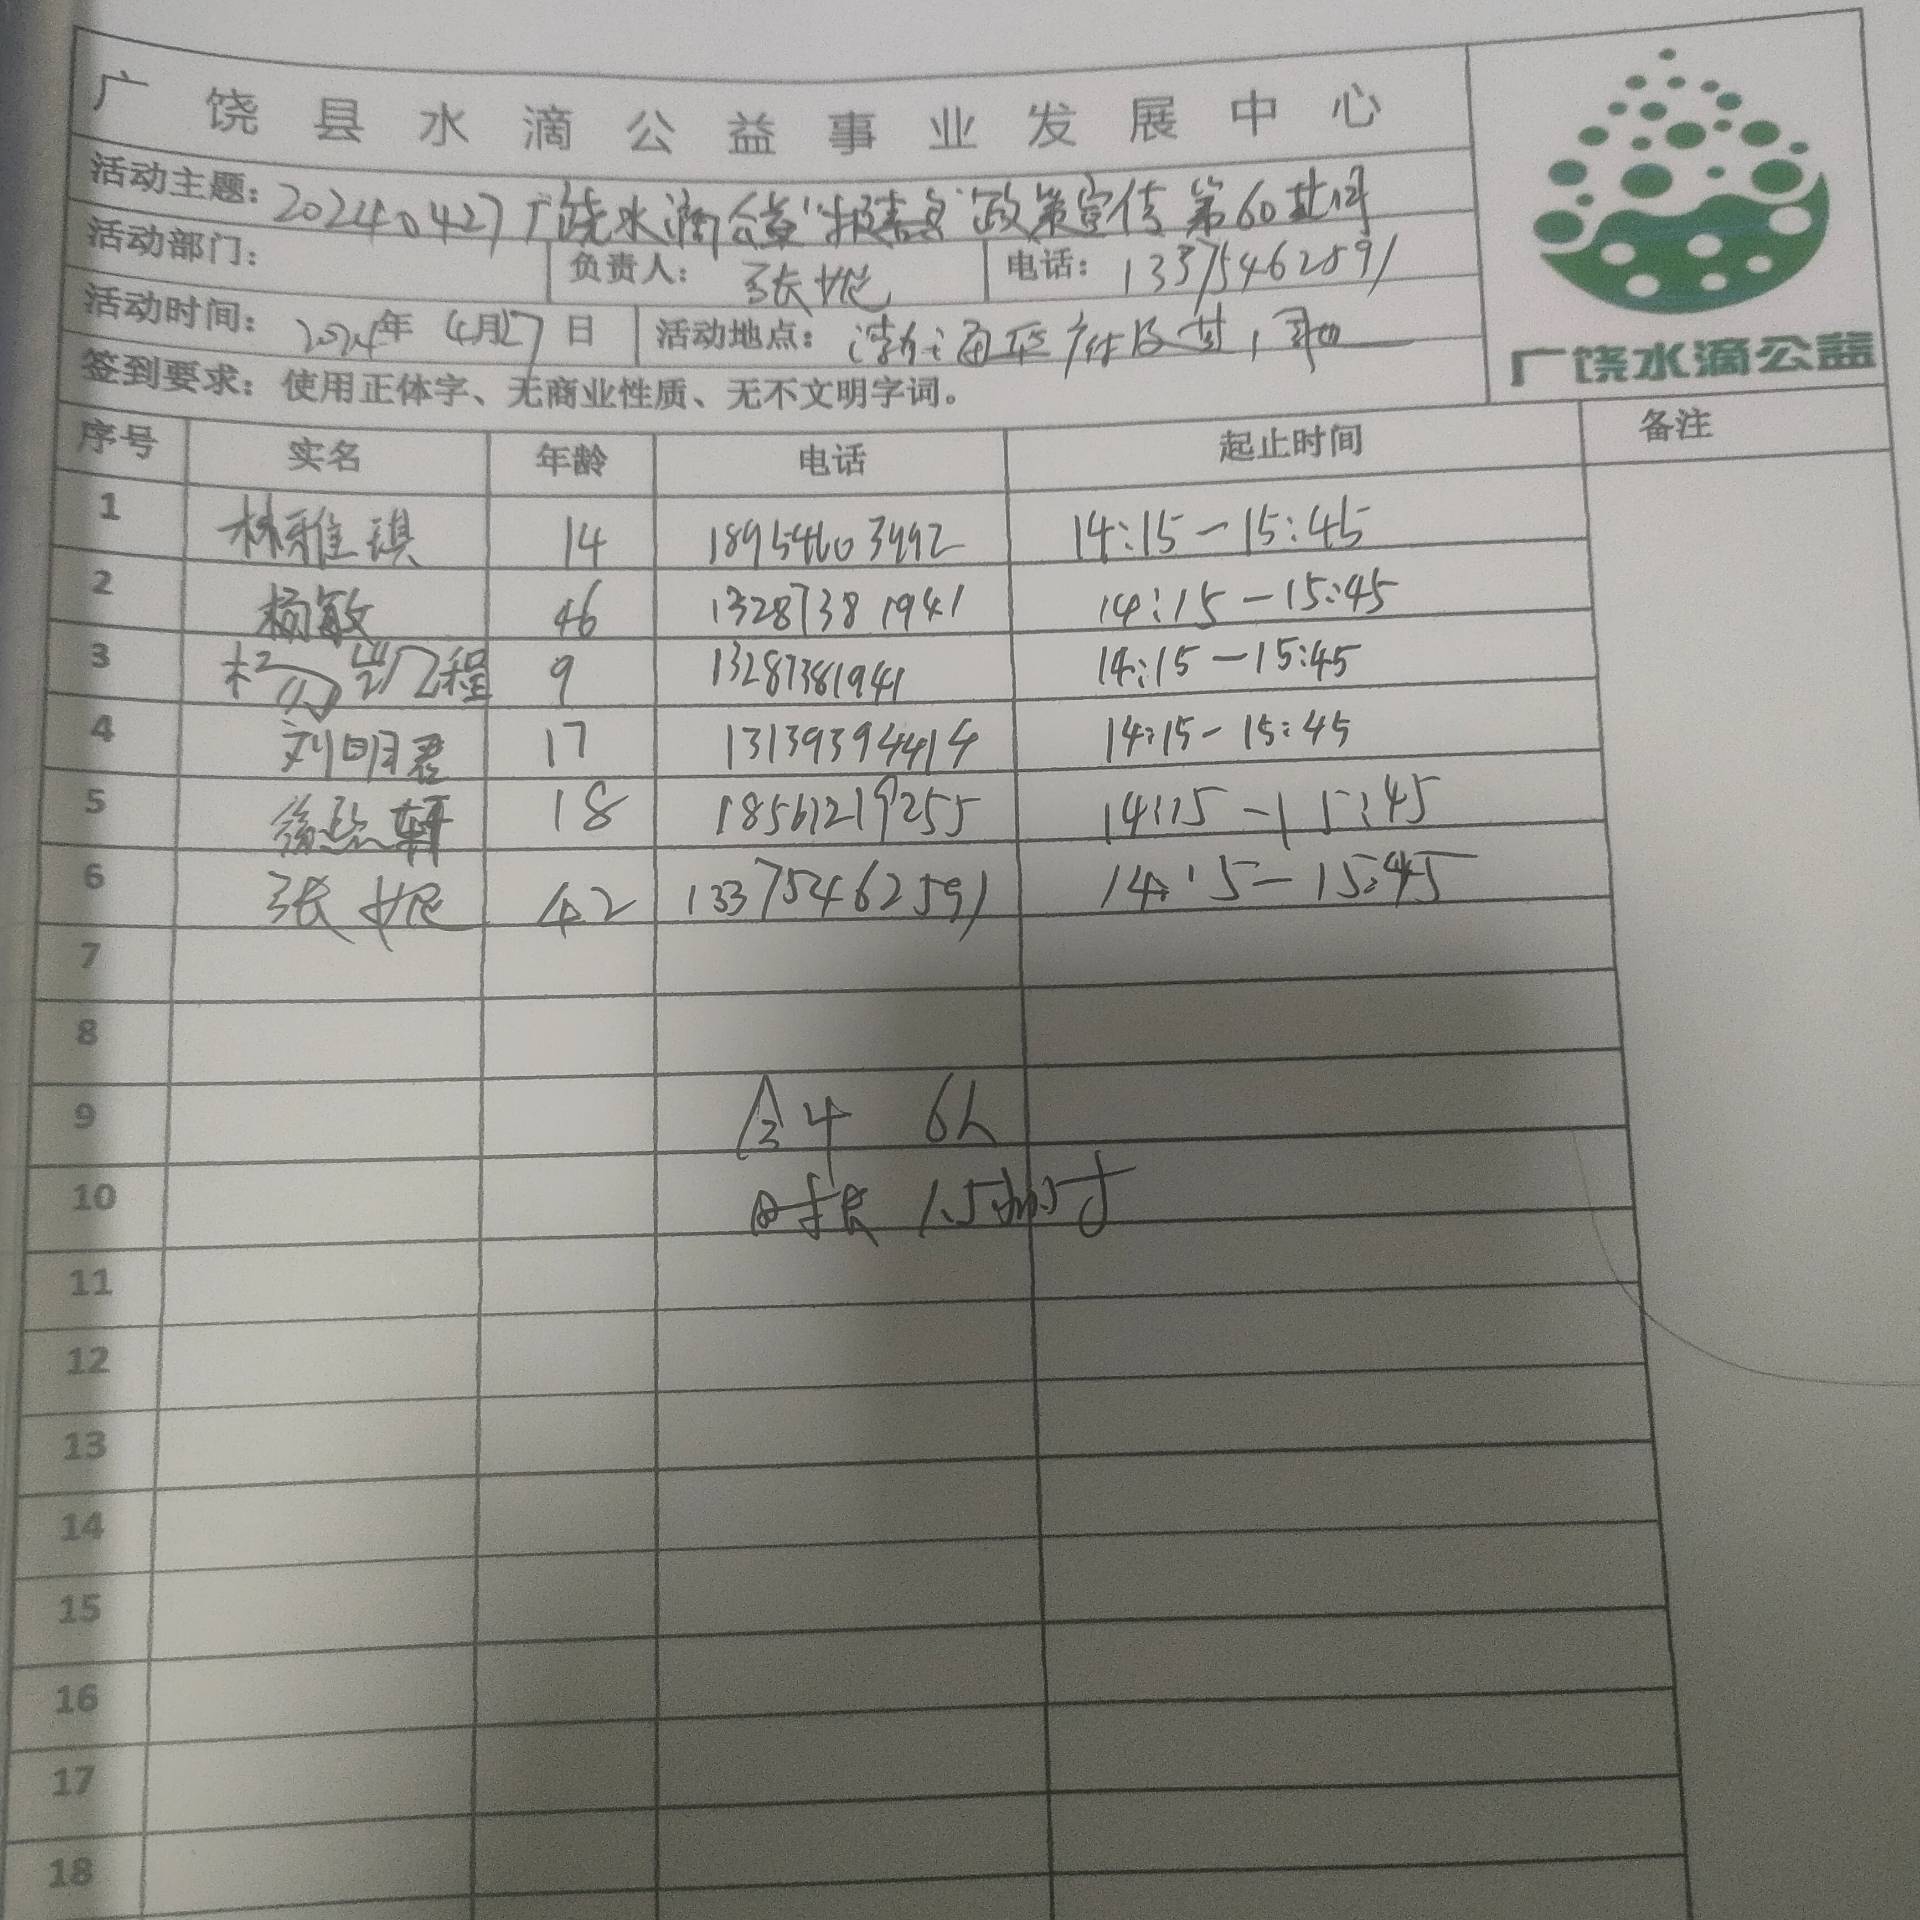 广饶县水滴公益事业发展中心
活动主题：20240427广饶水滴公益“ ”政策宣传第60
活动部门： 负责人：张妮 电话：13375462591
活动时间：2024年4月27日 活动地点：
签到要求：使用正体字、无商业性质、无不文明字词。
广饶水滴公益
序号 实名 年龄 电话 起止时间 备注
1 林雅琪 14 18954603992 14:15-15:45
2 杨敏 46 13287381941 14:15-15:45
3 程 9 13287381941 14:15-15:45
4 刘明君 17 13139394414 14:15-15:45
5 徐 轩 18 18561219255 14:15-15:45
6 张妮 42 13375462591 14:15-15:45
7
8
9 合计 6人
10 时长 1.5小时
11
12
13
14
15
16
17
18